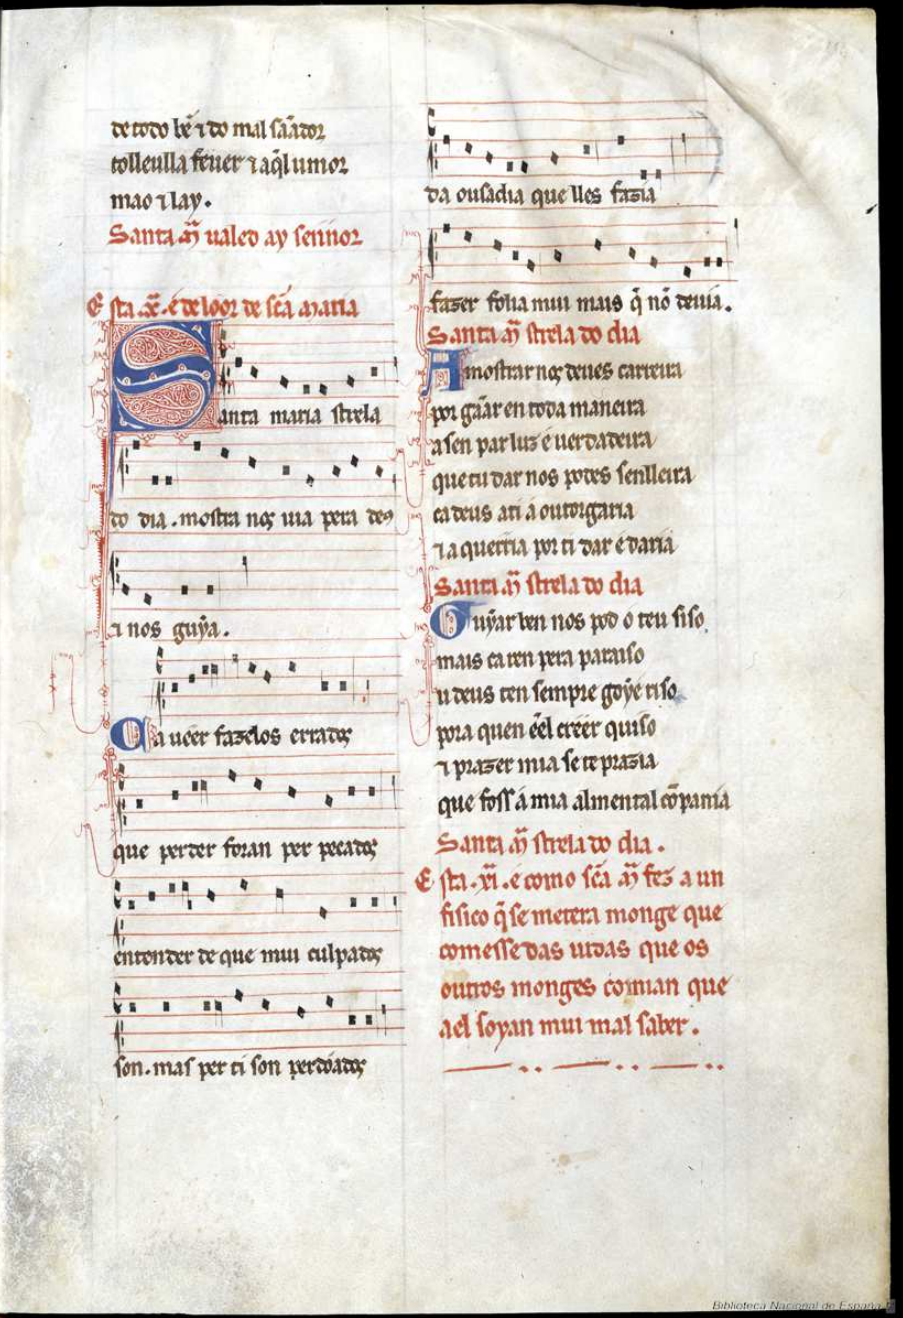 de todo bẽ ⁊ do mal sãador
tolleulla feuer ⁊ aq̃l umor
mao ⁊ lay.
Santa M̃ ualed ay sennor
Esta .xͣ. é de loor de sc̃a Maria
Santa maria strela
do dia . mostra nos uia pera deꝰ
⁊ nos guỹa.
Ca ueer fazelos errados
que perder foran per pecados
entender de que mui culpados
son . mas per ti son perdõados
da ousadia que lles fazia
fazer folia mui mais q̃ nõ deuia.
Santa M̃ strela do dia
Amostrar nos deues carreira
por gãar en toda maneira
a sen par luz e uerdadeira
que tu dar nos podes senlleira
ca deus a ti á outorgaria
⁊ a querria por ti dar e daria
Santa M̃ strela do dia
Guỹar ben nos pod o teu siso
mais ca ren pera paraiso
u deus ten sempre goỹe riso
pora quen ẽel creer quiso
⁊ prazer mia se te prazia
que foss á mia alm en tal cõpania
Santa M̃ strela do dia .
Esta .xi. e como sc̃a M̃ fez a un
fisico q̃ se metera monge que
comesse das uidas que os
outros monges comian que
a el soyan mui mal saber .
Biblioteca Nacional de España